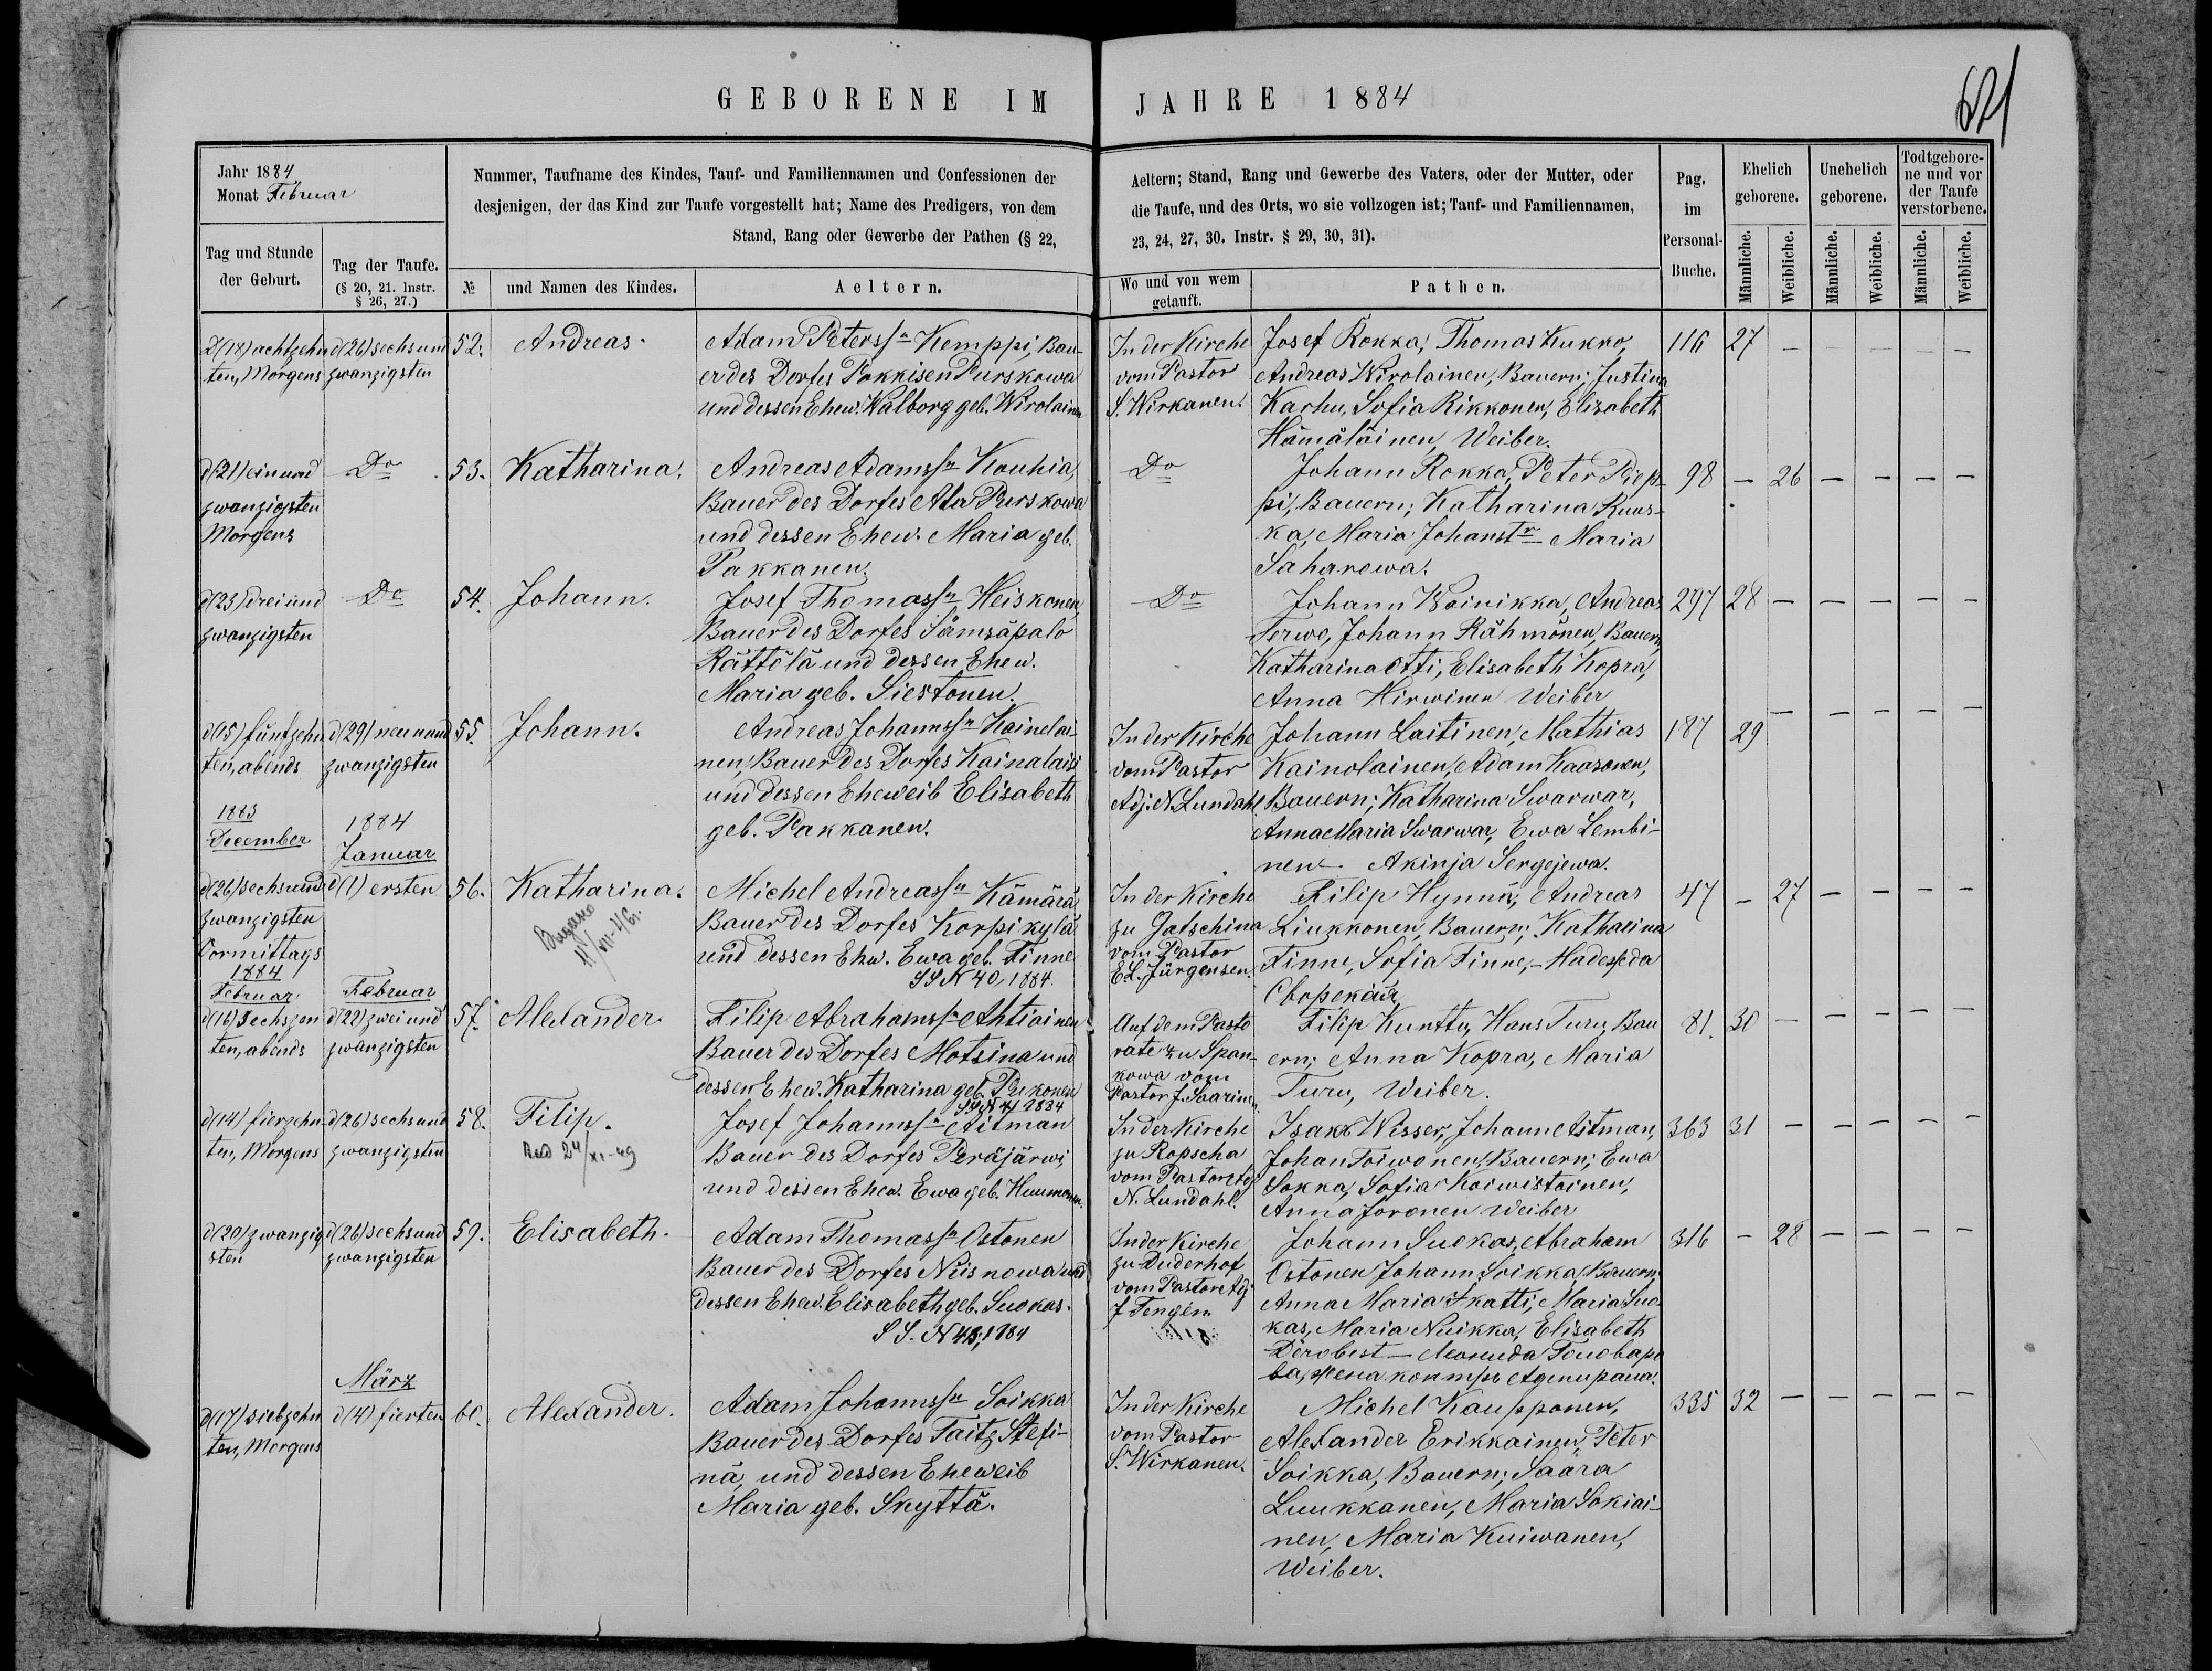 GEBORENE IM JAHRE 1884
621
Jahr 1884
Monat Februar
Nummer, Taufname des Kindes, Tauf- und Familiennamen und Confessionen der
desjenigen, der das Kind zur Taufe vorgestellt hat; Name des Predigers, von dem
Stand, Rang oder Gewerbe der Pathen (§ 22,
Aeltern; Stand, Rang und Gewerbe des Vaters, oder der Mutter, oder
die Taufe, und des Orts, wo sie vollzogen ist; Tauf- und Familiennamen,
23, 24, 27, 30. Instr. § 29, 30, 31).
Pag.
im
Personal-
Buche.
Ehelich
geborene.
Unehelich
geborene.
Todtgebore-
ne und vor
der Taufe
verstorbene.
Tag und Stunde
der Geburt.
Tag der Taufe.
(§ 20, 21. Instr.
§ 26, 27.)
№
und Namen des Kindes.
Aeltern.
Wo und von wem
getauft.
Pathen.
Männliche.
Weibliche.
Männliche.
Weibliche.
Männliche.
Weibliche.
D(18) achtzehn
ten, Morgens
d(26) sechsund
zwanzigsten
52.
Andreas.
Adam Peterssn Kemppi, Bau-
er des Dorfes Pokkisen Purskowa
und dessen Ehew. Walborg geb. Wirolainen
In der Kirche
vom Pastor
S. Wirkanen.
Josef Rokka, Thomas Kukko,
Andreas Wirolainen, Bauern; Justina
Karhu, Sofia Rikkonen, Elisabeth
Hämäläinen, Weiber.
116
27
— — — — —
d(21) einund
zwanzigsten
Morgens
Do
53.
Katharina.
Andreas Adamssn Kouhia,
Bauer des Dorfes Ala Purskowa
und dessen Ehew. Maria geb.
Pakkanen.
Do
Johann Rokka, Peter Piep-
pi, Bauern; Katharina Ruus-
ka, Maria Johanstr Maria
Saharowa.
98
— 26 — — — —
d(23) dreiund
zwanzigsten
Do
54.
Johann.
Josef Thomassn Heiskonen,
Bauer des Dorfes Sämsäpalo
Rättölä und dessen Ehew.
Maria geb. Siestonen.
Do
Johann Woinikka, Andreas
Terwo, Johann Rähmönen, Bauern,
Katharina Otti, Elisabeth Kopra,
Anna Hirwinen Weiber
297
28 — — — — —
d(15) fünfzehn
ten, abends
d(29) neunund
zwanzigsten
55.
Johann.
Andreas Johannssn Kainelai-
nen, Bauer des Dorfes Kainalaisi
und dessen Eheweib Elisabeth
geb. Pakkanen.
In der Kirche
vom Pastor
Adj. N. Lundahl.
Johann Laitinen, Mathias
Kainolainen, Adam Kaasonen,
Bauern; Katharina Swarwar,
Anna Maria Swarwar, Ewa Lembi-
nen — Akinja Sergejewa.
187
29 — — — — —
1883
December
1884
Januar
d(26) sechsund
zwanzigsten
Vormittags
d(1) ersten
56.
Katharina.
Michel Andreassn Kämärä
Bauer des Dorfes Korpikylä
und dessen Ehw. Ewa geb. Finne
SS N 40, 1884.
In der Kirche
zu Gatschina
vom Pastor
E. L. Jürgensen.
Filip Hynnä, Andreas
Liukkonen, Bauern; Katharina
Finne, Sofia Finne,
47
— 27 — — — —
1884
Februar
Februar
d(16) Sechszen
ten, abends
d(22) zwei und
zwanzigsten
57.
Alexander.
Filip Abrahamssn Ahtiainen
Bauer des Dorfes Motsina und
dessen Ehew. Katharina geb. Pukonen
SS N 41 1884
Auf dem Pasto
rate zu Span-
kowa vom
Pastor J. Saarinen.
Filip Kunttu, Hans Turu, Bau
ern; Anna Kopra, Maria
Turu, Weiber.
81.
30 — — — — —
d(14) fierzehn
ten, Morgens
d(26) sechsund
zwanzigsten
58.
Filip.
24/XI-49
Josef Johannssn Aitman
Bauer des Dorfes Peräjärwi,
und dessen Ehew. Ewa geb. Huumonen.
In der Kirche
zu Ropscha
vom Pastor Adj
N. Lundahl.
Isak Wesser, Johann Aitman,
Johan Toiwonen, Bauern; Ewa
Sokka, Sofia Koiwistoinen,
Anna Joronen Weiber
363
31 — — — — —
d(20) zwanzig
sten
d(26) sechsund
zwanzigsten
59.
Elisabeth.
Adam Thomassn Ostonen
Bauer des Dorfes Nuisnowa und
dessen Ehew. Elisabeth geb. Suokas.
SS. N 43, 1884
In der Kirche
zu Duderhof
vom Pastor Adj
J Tengén.
Johann Suokas, Abraham
Ostonen Johann Soikka, Bauern,
Anna Maria Skatti, Maria Suo-
kas, Maria Nuikka, Elisabeth
316
— 28 — — — —
März
d(17) siebzehn
ten, Morgens
d(4) fierten
60.
Alexander.
Adam Johannssn Soikka
Bauer des Dorfes Taitz Stefi-
nä, und dessen Eheweib
Maria geb. Skyttä.
In der Kirche
vom Pastor
S. Wirkanen.
Michel Kaupponen,
Alexander Erikkainen, Peter
Soikka, Bauern; Saara
Luukkanen, Maria Sokiai-
nen, Maria Kuiwanen,
Weiber.
335
32 — — — — —